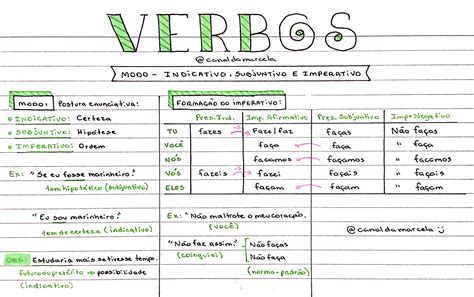 VERBOS
@canaldamarcela
MODO - INDICATIVO, SUBJUNTIVO E IMPERATIVO
MODO: Postura enunciativa:
INDICATIVO: Certeza
SUBJUNTIVO: Hipótese
IMPERATIVO: Ordem
Ex: "Se eu fosse marinheiro."
tom hipotético (subjuntivo)
"Eu sou marinheiro."
tom de certeza (indicativo)
OBS: Estudaria mais se tivesse tempo.
futuro do pretérito → possibilidade
(indicativo)
FORMAÇÃO DO IMPERATIVO:
Pres. Ind. Imp. Afirmativo Pres. Subjuntivo Imp. Negativo
TU fazes -s Faze/faz faças Não faças
VOCÊ faça faça " faça
NÓS façamos façamos " façamos
VÓS fazeis -s fazei façais " façais
ELES façam façam " façam
Ex: "Não maltrate o meu coração."
(você)
"Não faz assim." Não faças
(coloquial) Não faça
(norma-padrão)
@canaldamarcela :)